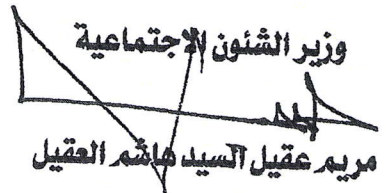 وزير الشئون الاجتماعية
مريم عقيل السيد هاشم العقيل